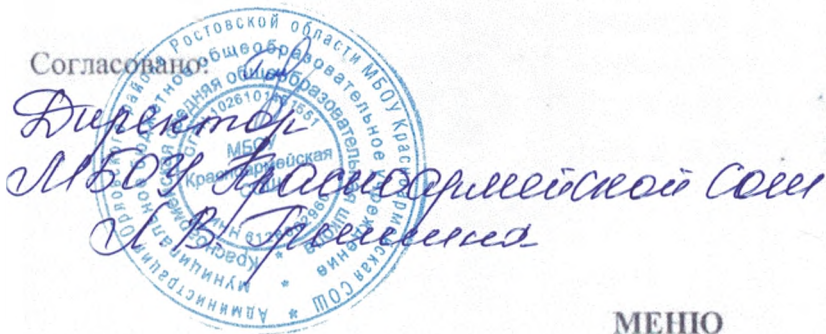 Согласовано:
Директор
МБОУ Красноармейской сош
Л.В. Гришина
Администрация Орловского района Ростовской области МБОУ Красноармейская СОШ
муниципальное бюджетное общеобразовательное учреждение
Красноармейская средняя общеобразовательная школа
МБОУ
Красноармейская
СОШ
МЕНЮ